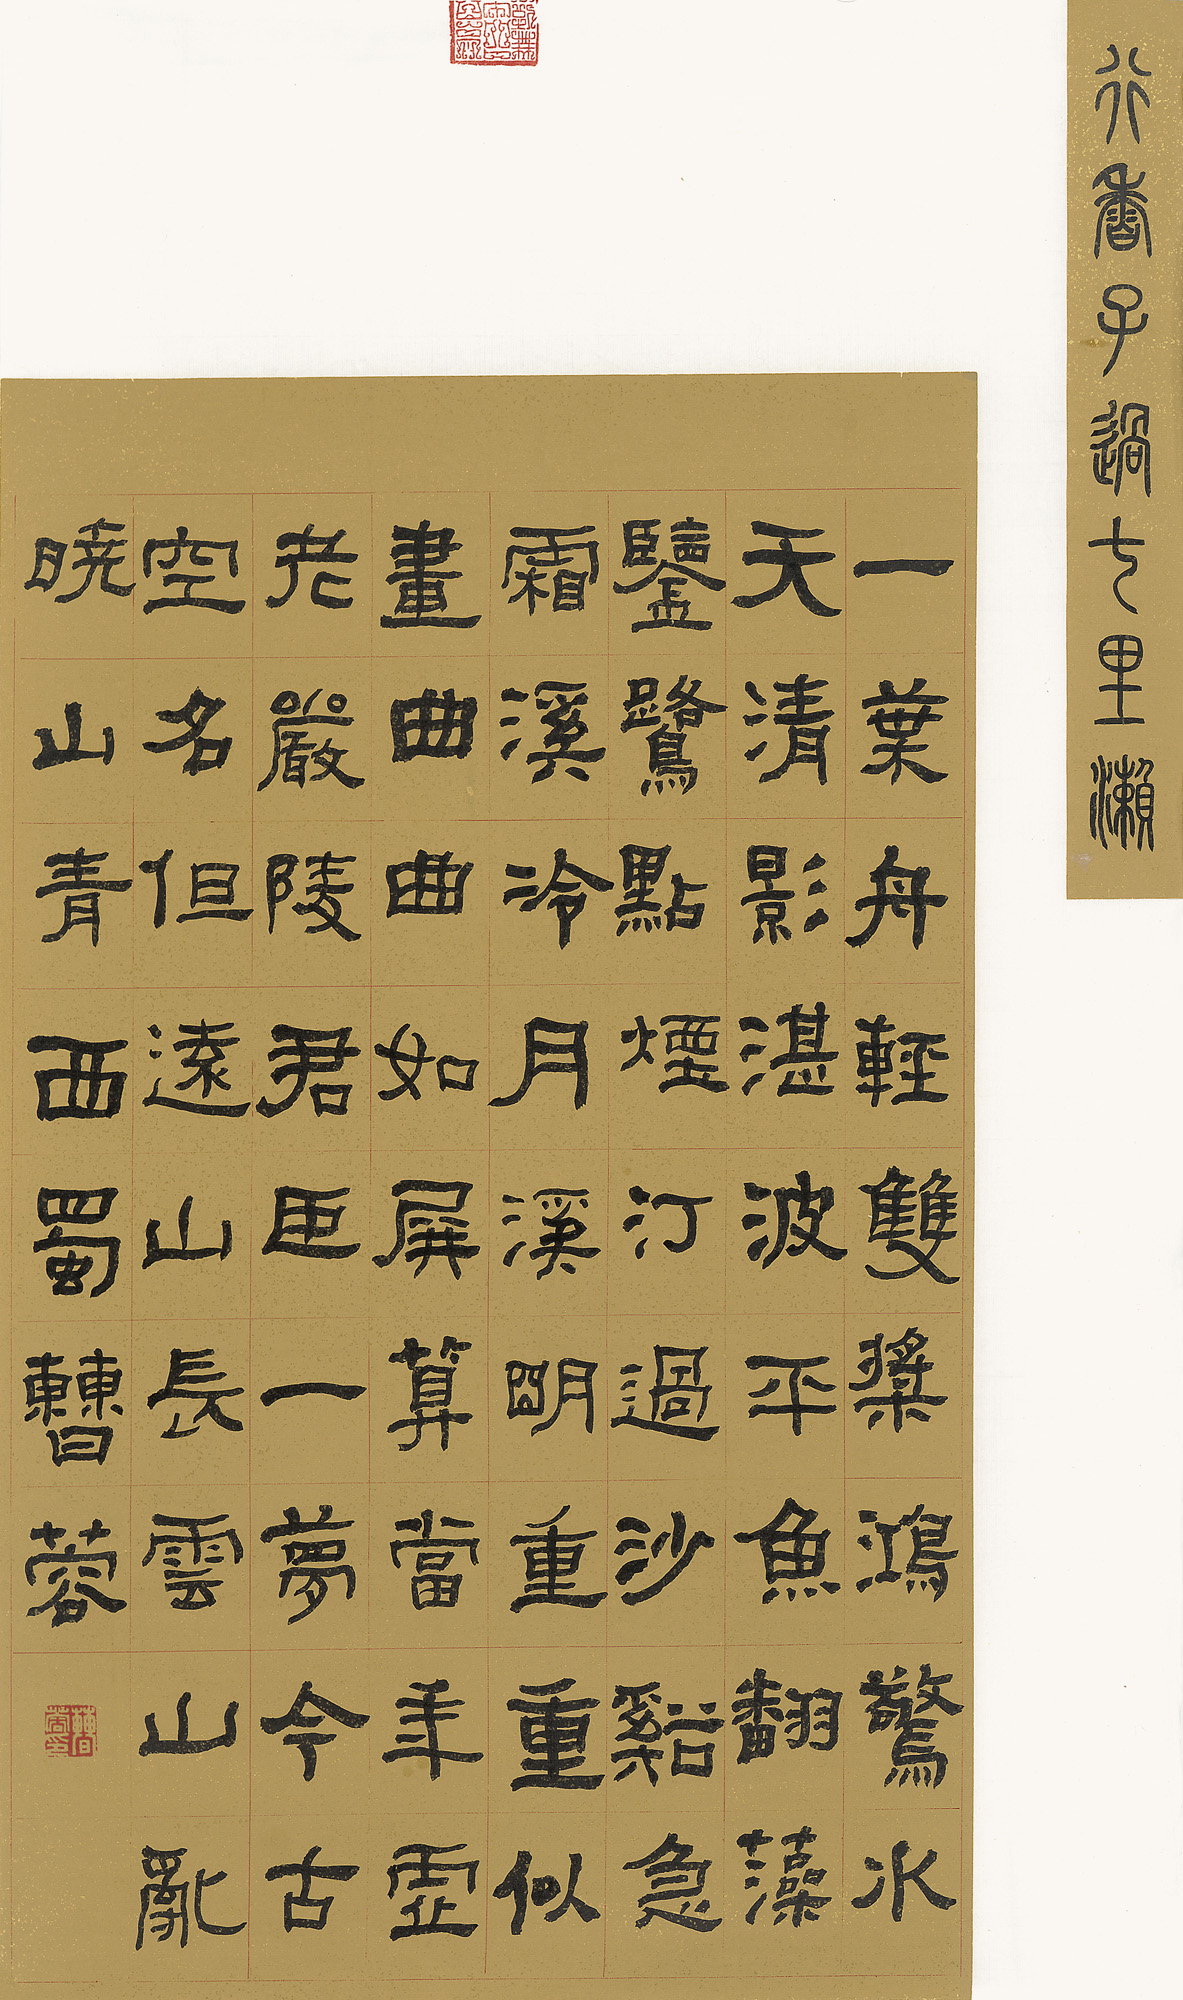 行香子過七里瀨
一葉舟輕雙槳鴻驚水
天清影湛波平魚翻藻
鑒鷺點煙汀過沙谿急
霜溪冷月溪明重重似
畫曲曲如屏算當年虛
老嚴陵君臣一夢今古
空名但遠山長雲山亂
曉山青西蜀曹蓉